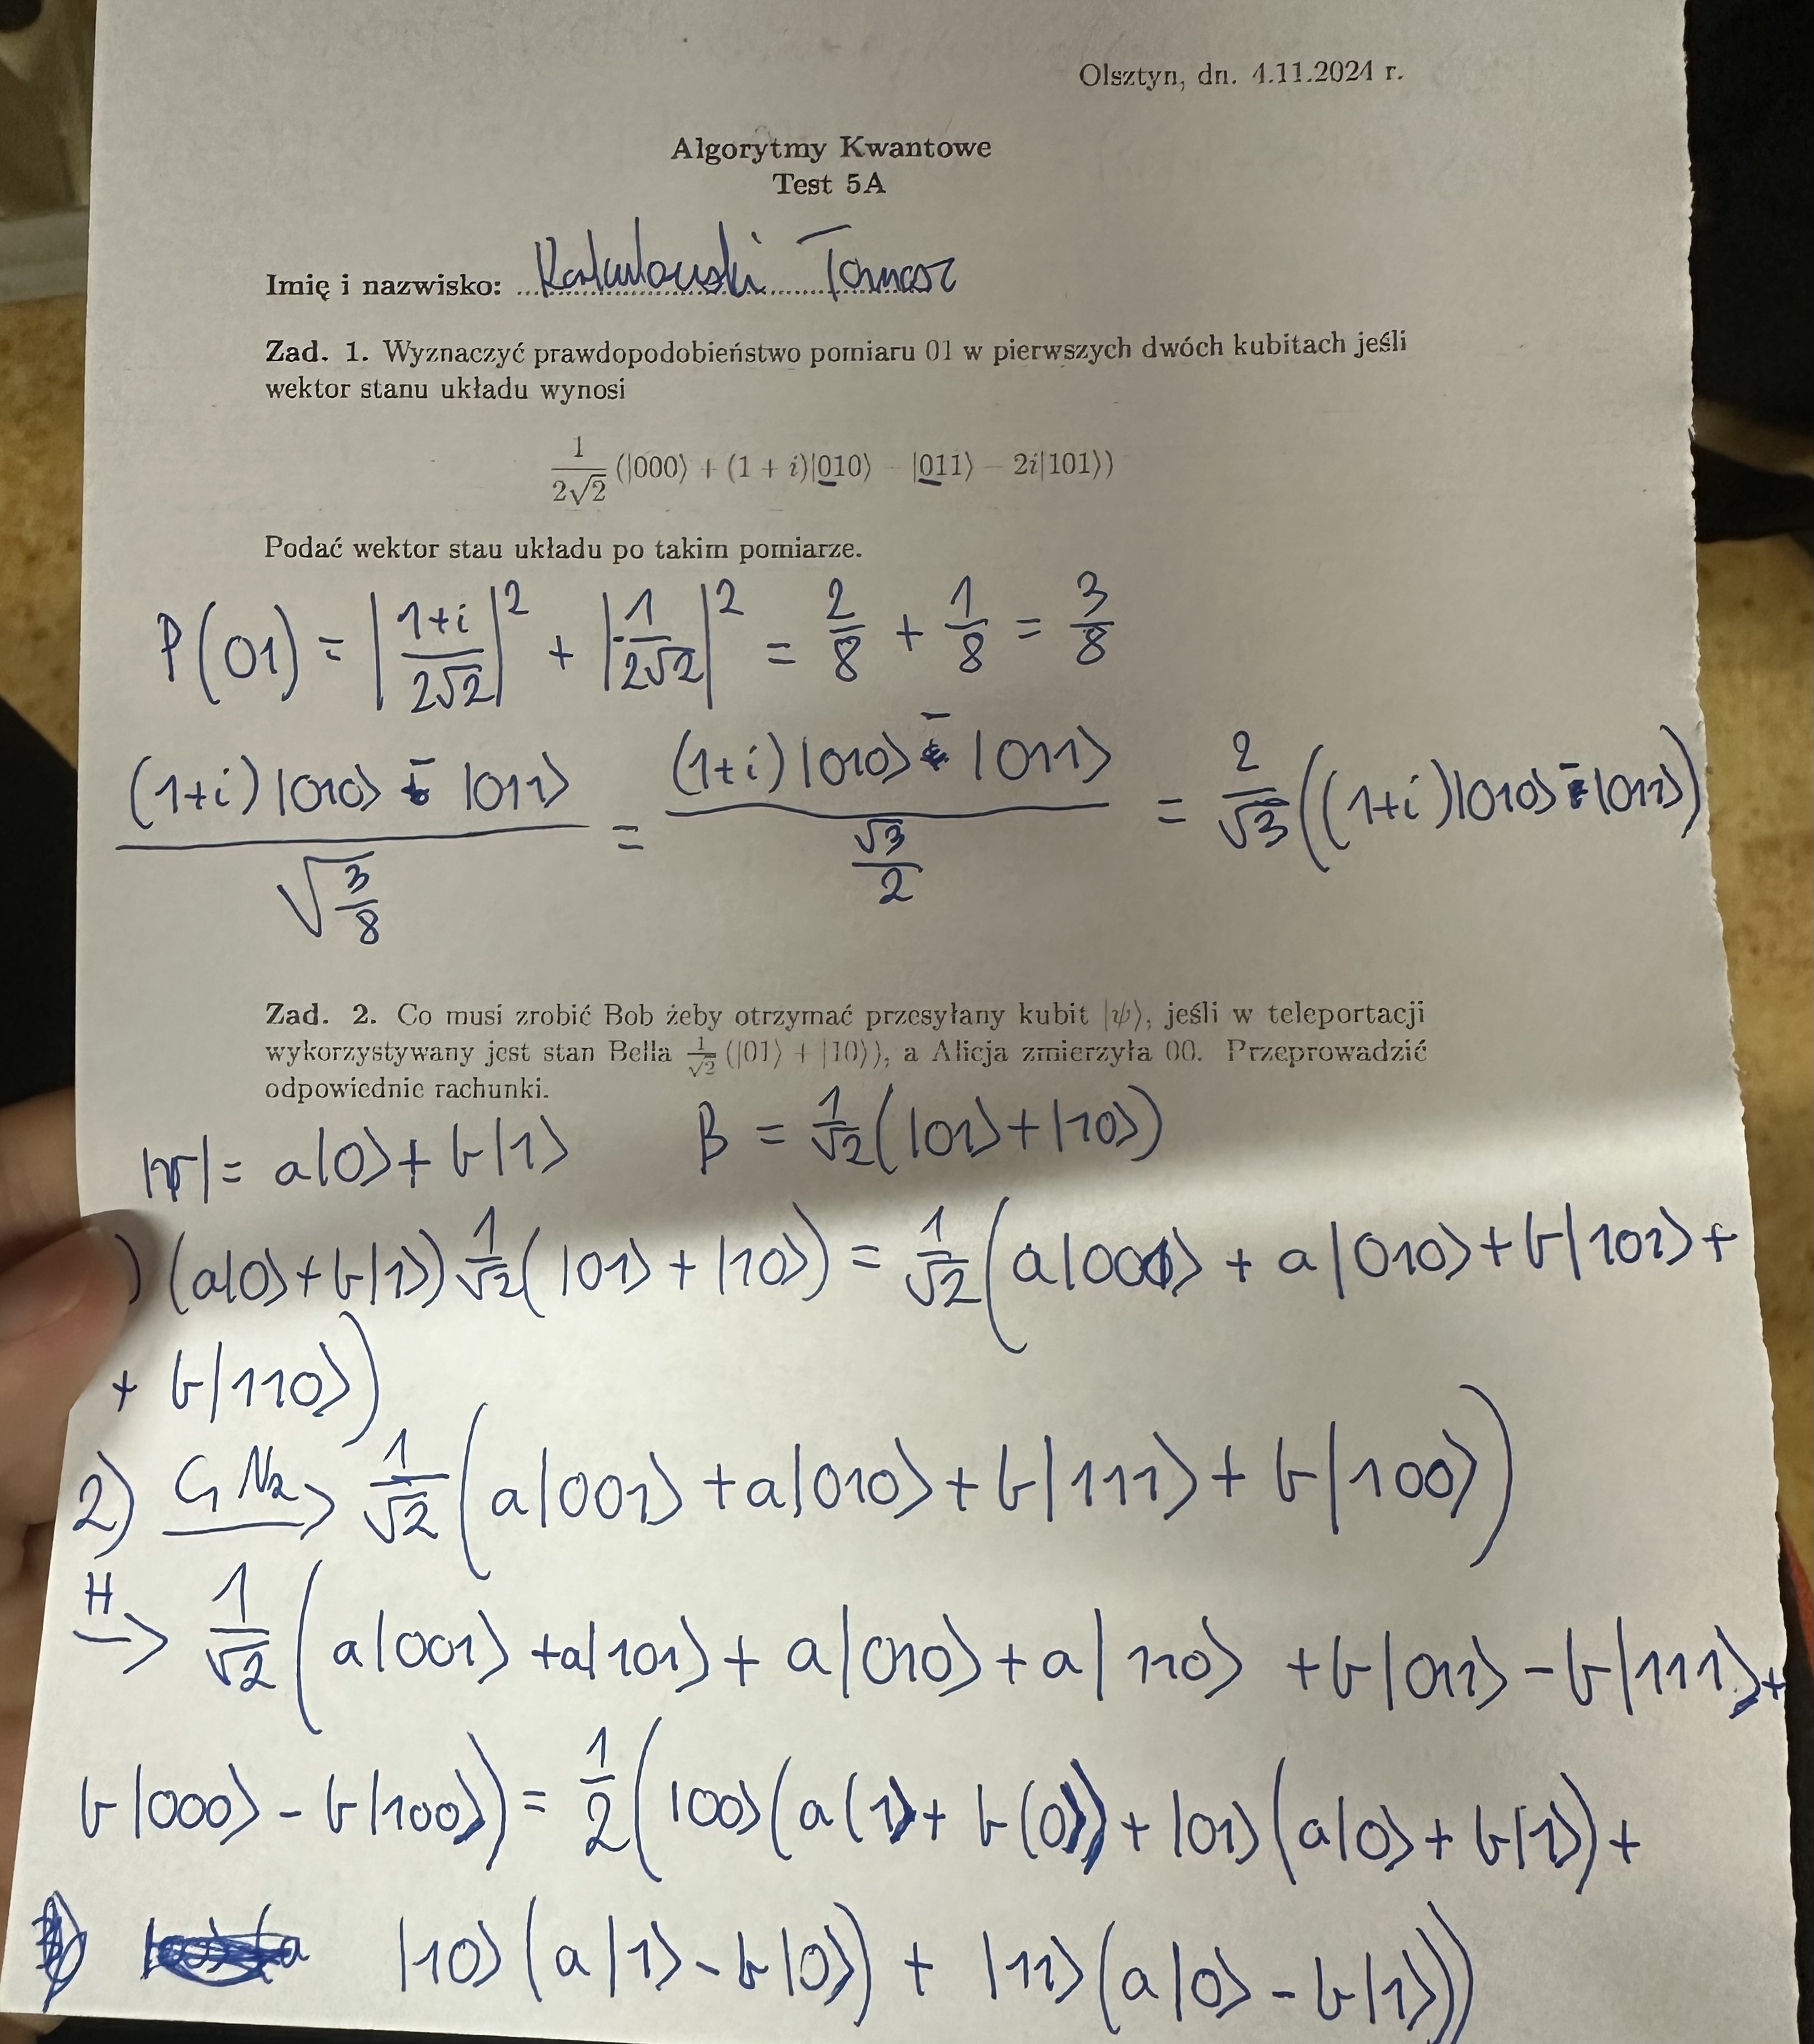 Olsztyn, dn. 4.11.2024 r.
Algorytmy Kwantowe
Test 5A
Imię i nazwisko: Tomasz
Zad. 1. Wyznaczyć prawdopodobieństwo pomiaru 01 w pierwszych dwóch kubitach jeśli
wektor stanu układu wynosi
1/(2√2) (|000⟩ + (1 + i)|010⟩ − |011⟩ − 2i|101⟩)
Podać wektor stau układu po takim pomiarze.
P(01) = |(1+i)/(2√2)|² + |-1/(2√2)|² = 2/8 + 1/8 = 3/8
((1+i)|010⟩ - |011⟩)/√(3/8) = ((1+i)|010⟩ - |011⟩)/(√3/2) = 2/√3 ((1+i)|010⟩ - |011⟩)
Zad. 2. Co musi zrobić Bob żeby otrzymać przesyłany kubit |ψ⟩, jeśli w teleportacji
wykorzystywany jest stan Bella 1/√2 (|01⟩ + |10⟩), a Alicja zmierzyła 00. Przeprowadzić
odpowiednie rachunki.
|ψ| = a|0⟩ + b|1⟩ B = 1/√2 (|01⟩ + |10⟩)
) (a|0⟩ + b|1⟩) 1/√2 (|01⟩ + |10⟩) = 1/√2 (a|001⟩ + a|010⟩ + b|101⟩ +
+ b|110⟩)
2) → 1/√2 (a|001⟩ + a|010⟩ + b|111⟩ + b|100⟩)
H → 1/√2 (a|001⟩ + a|101⟩ + a|010⟩ + a|110⟩ + b|011⟩ - b|111⟩ +
b|000⟩ - b|100⟩) = 1/2 (|00⟩(a|1⟩ + b|0⟩) + |01⟩(a|0⟩ + b|1⟩) +
|10⟩(a|1⟩ - b|0⟩) + |11⟩(a|0⟩ - b|1⟩))